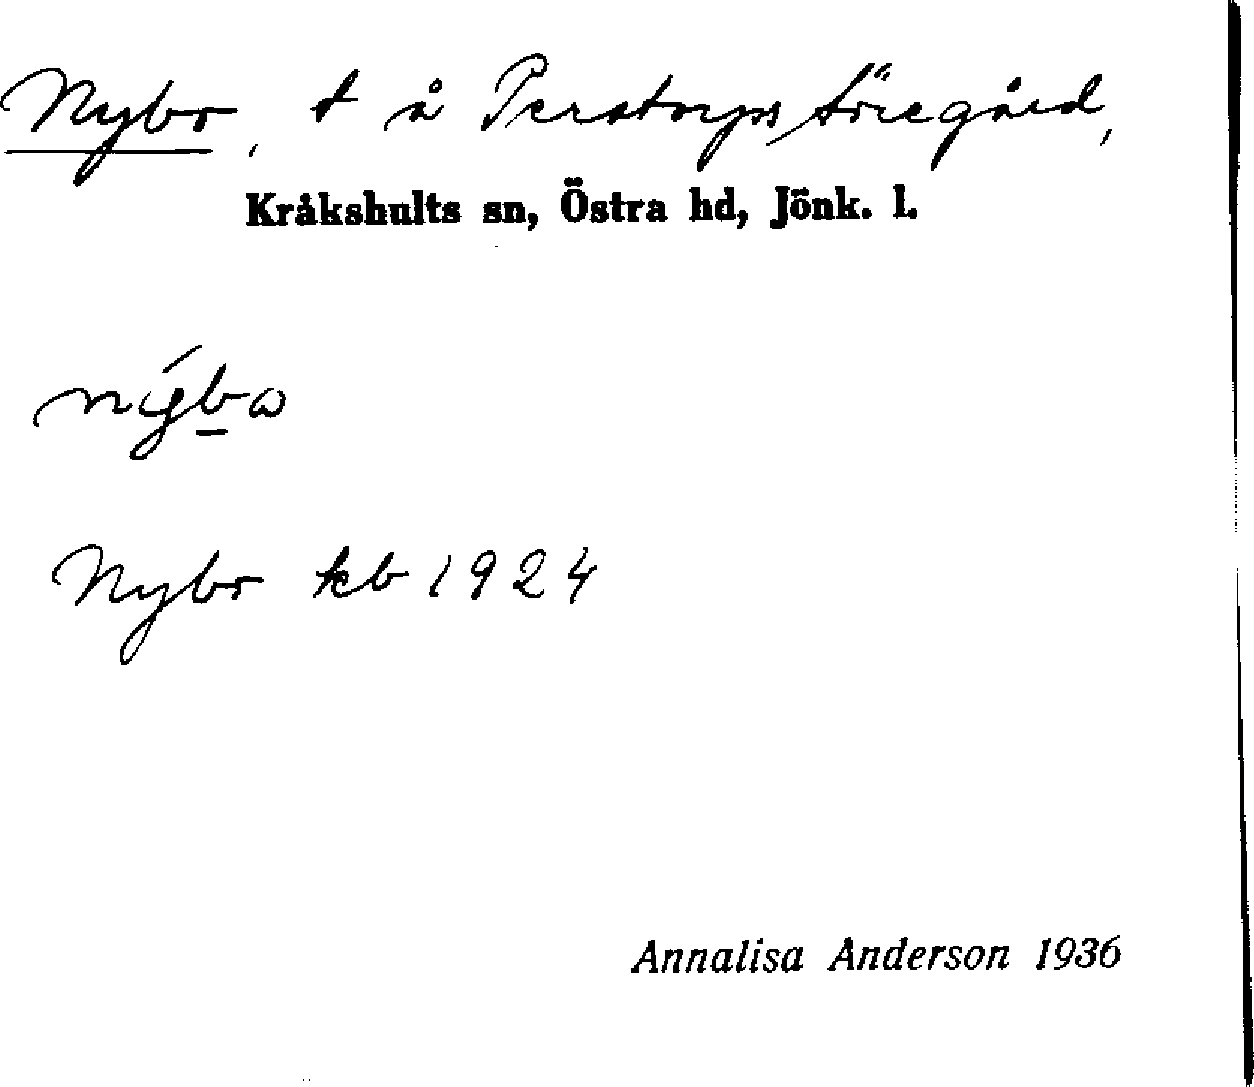 Nybo, t å Perstorps Söregård,
Kråkshults sn, Östra hd, Jönk. l.
nýbo
Nybo kb 1924
Annalisa Anderson 1936